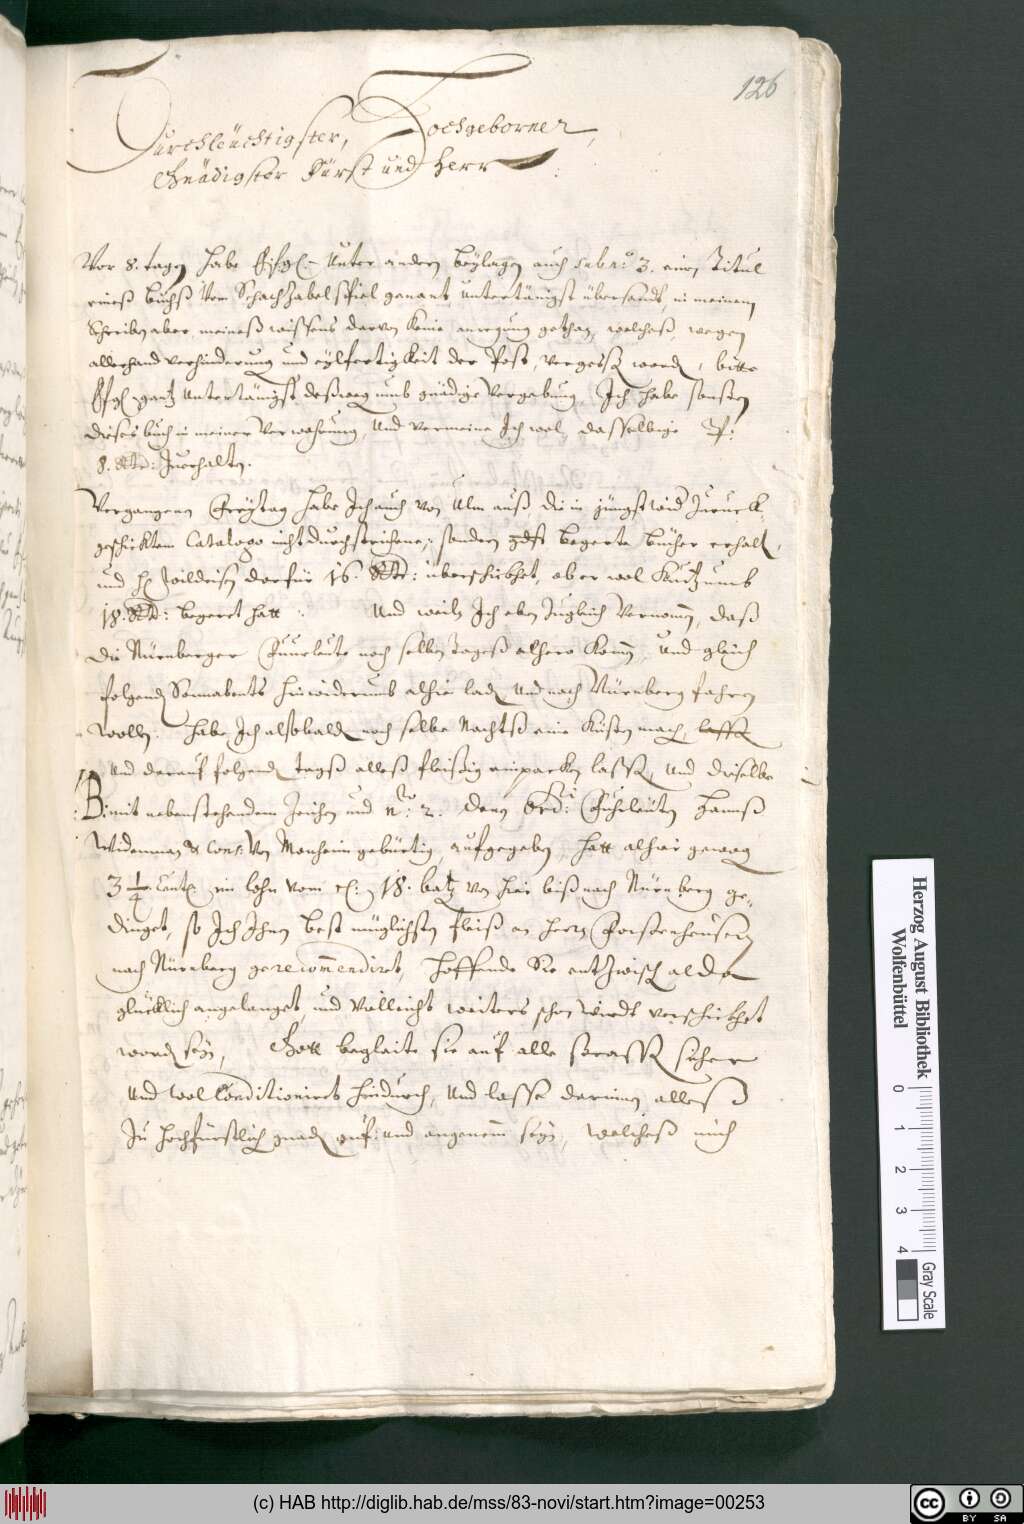 126
Durchleüchtigster, Hochgeborner,
Gnädigster Fürst und Herr
Vor 8. tagen habe Unter andern beylagen auch sub n.o 3. einen Titul
eineß buchß Vom Schachzabelspiel genant, Untertänigst übersandt, in meinem
Schreiben aber meineß wissens darvon keine anregung gethan, welcheß, wegen
allerhand verhinderung und eylfertigkeit der Post, vergessen worden, bitte
EFG gantz Untertänigst deßwegen umb gnädige Vergebung, Ich habe sonsten
dieses buch in meiner Verwahrung, Und vermeine Ich wol dasselbige P.
8. Rtd: Zuerhalten.
Vergangenen Freytag habe Ich auch von Ulm auß, die in jüngst wider Zuruck
geschicktem Catalogo nicht durchstrichene, sondern begerte bücher erhalten,
und H. darfür 16. Rtd: überschicket, aber wol umb
18. Rtd: begeret hatt. Und weiln Ich eben Zugleich Vernommen, daß
die Nürnberger Fuhrleute noch selben tages alhero kommen, Und gleich
folgenden Sonnabents hinwiderumb alhie laden Und nach Nürnberg fahren
wollen: habe Ich alsobalden noch selbe Nachts eine Kisten machen lassen
Und darauf folgenden tags alleß fleißig einpacken lassen, Und dieselbe
B: mit nebenstehendem Zeichen und n.o 2. dem Ord: Fuhrleüten Hannß
Widenman & Cons: Von Monheim gebürtig, aufgegeben, hatt alhier gewogen
3 1/4 Cent: im lohn vom C: 18. batzen von hier biß nach Nürnberg ge-
dinget, so Ich Ihnen best müglichsten fleiß an Herrn Forstenheüsern
nach Nürnberg gerecommendiret, hoffende Sie entzwischen alda
glücklich angelanget, und Villeicht weiters schon wirdt verschicket
worden sein, Gott begleite sie auf alle strassen sicher
Und wol Conditioniret hindurch, Und lasse darinnen alleß
Zu hochfürstlichen gnaden und angenem sein, welcheß mich
Herzog August Bibliothek
Wolfenbüttel
0 1 2 3 4
Gray Scale
(c) HAB http://diglib.hab.de/mss/83-novi/start.htm?image=00253
cc BY SA